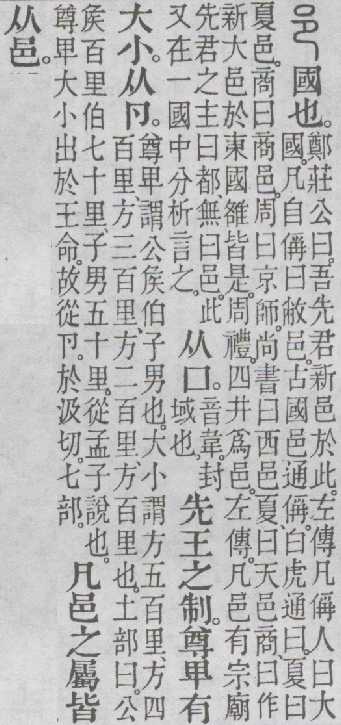 邑 國也。鄭莊公曰。吾先君新邑於此。左傳凡偁人曰大
國。凡自偁曰敝邑。古國邑通偁。白虎通曰。夏曰
夏邑。商曰商邑。周曰京師。尚書曰西邑夏曰天邑商曰作
新大邑於東國雒皆是。周禮。四井爲邑。左傳。凡邑有宗廟
先君之主曰都。無曰邑。此
又在一國中分析言之。
从囗。音韋。封
域也。
先王之制。尊卑有
大小。从卪。尊卑謂公侯伯子男也。大小謂方五百里、方四
百里、方三百里、方二百里、方百里也。土部曰。公
侯百里、伯七十里、子男五十里。從孟子說也。
尊卑大小出於王命。故從卪。於汲切。七部。
凡邑之屬皆
从邑。